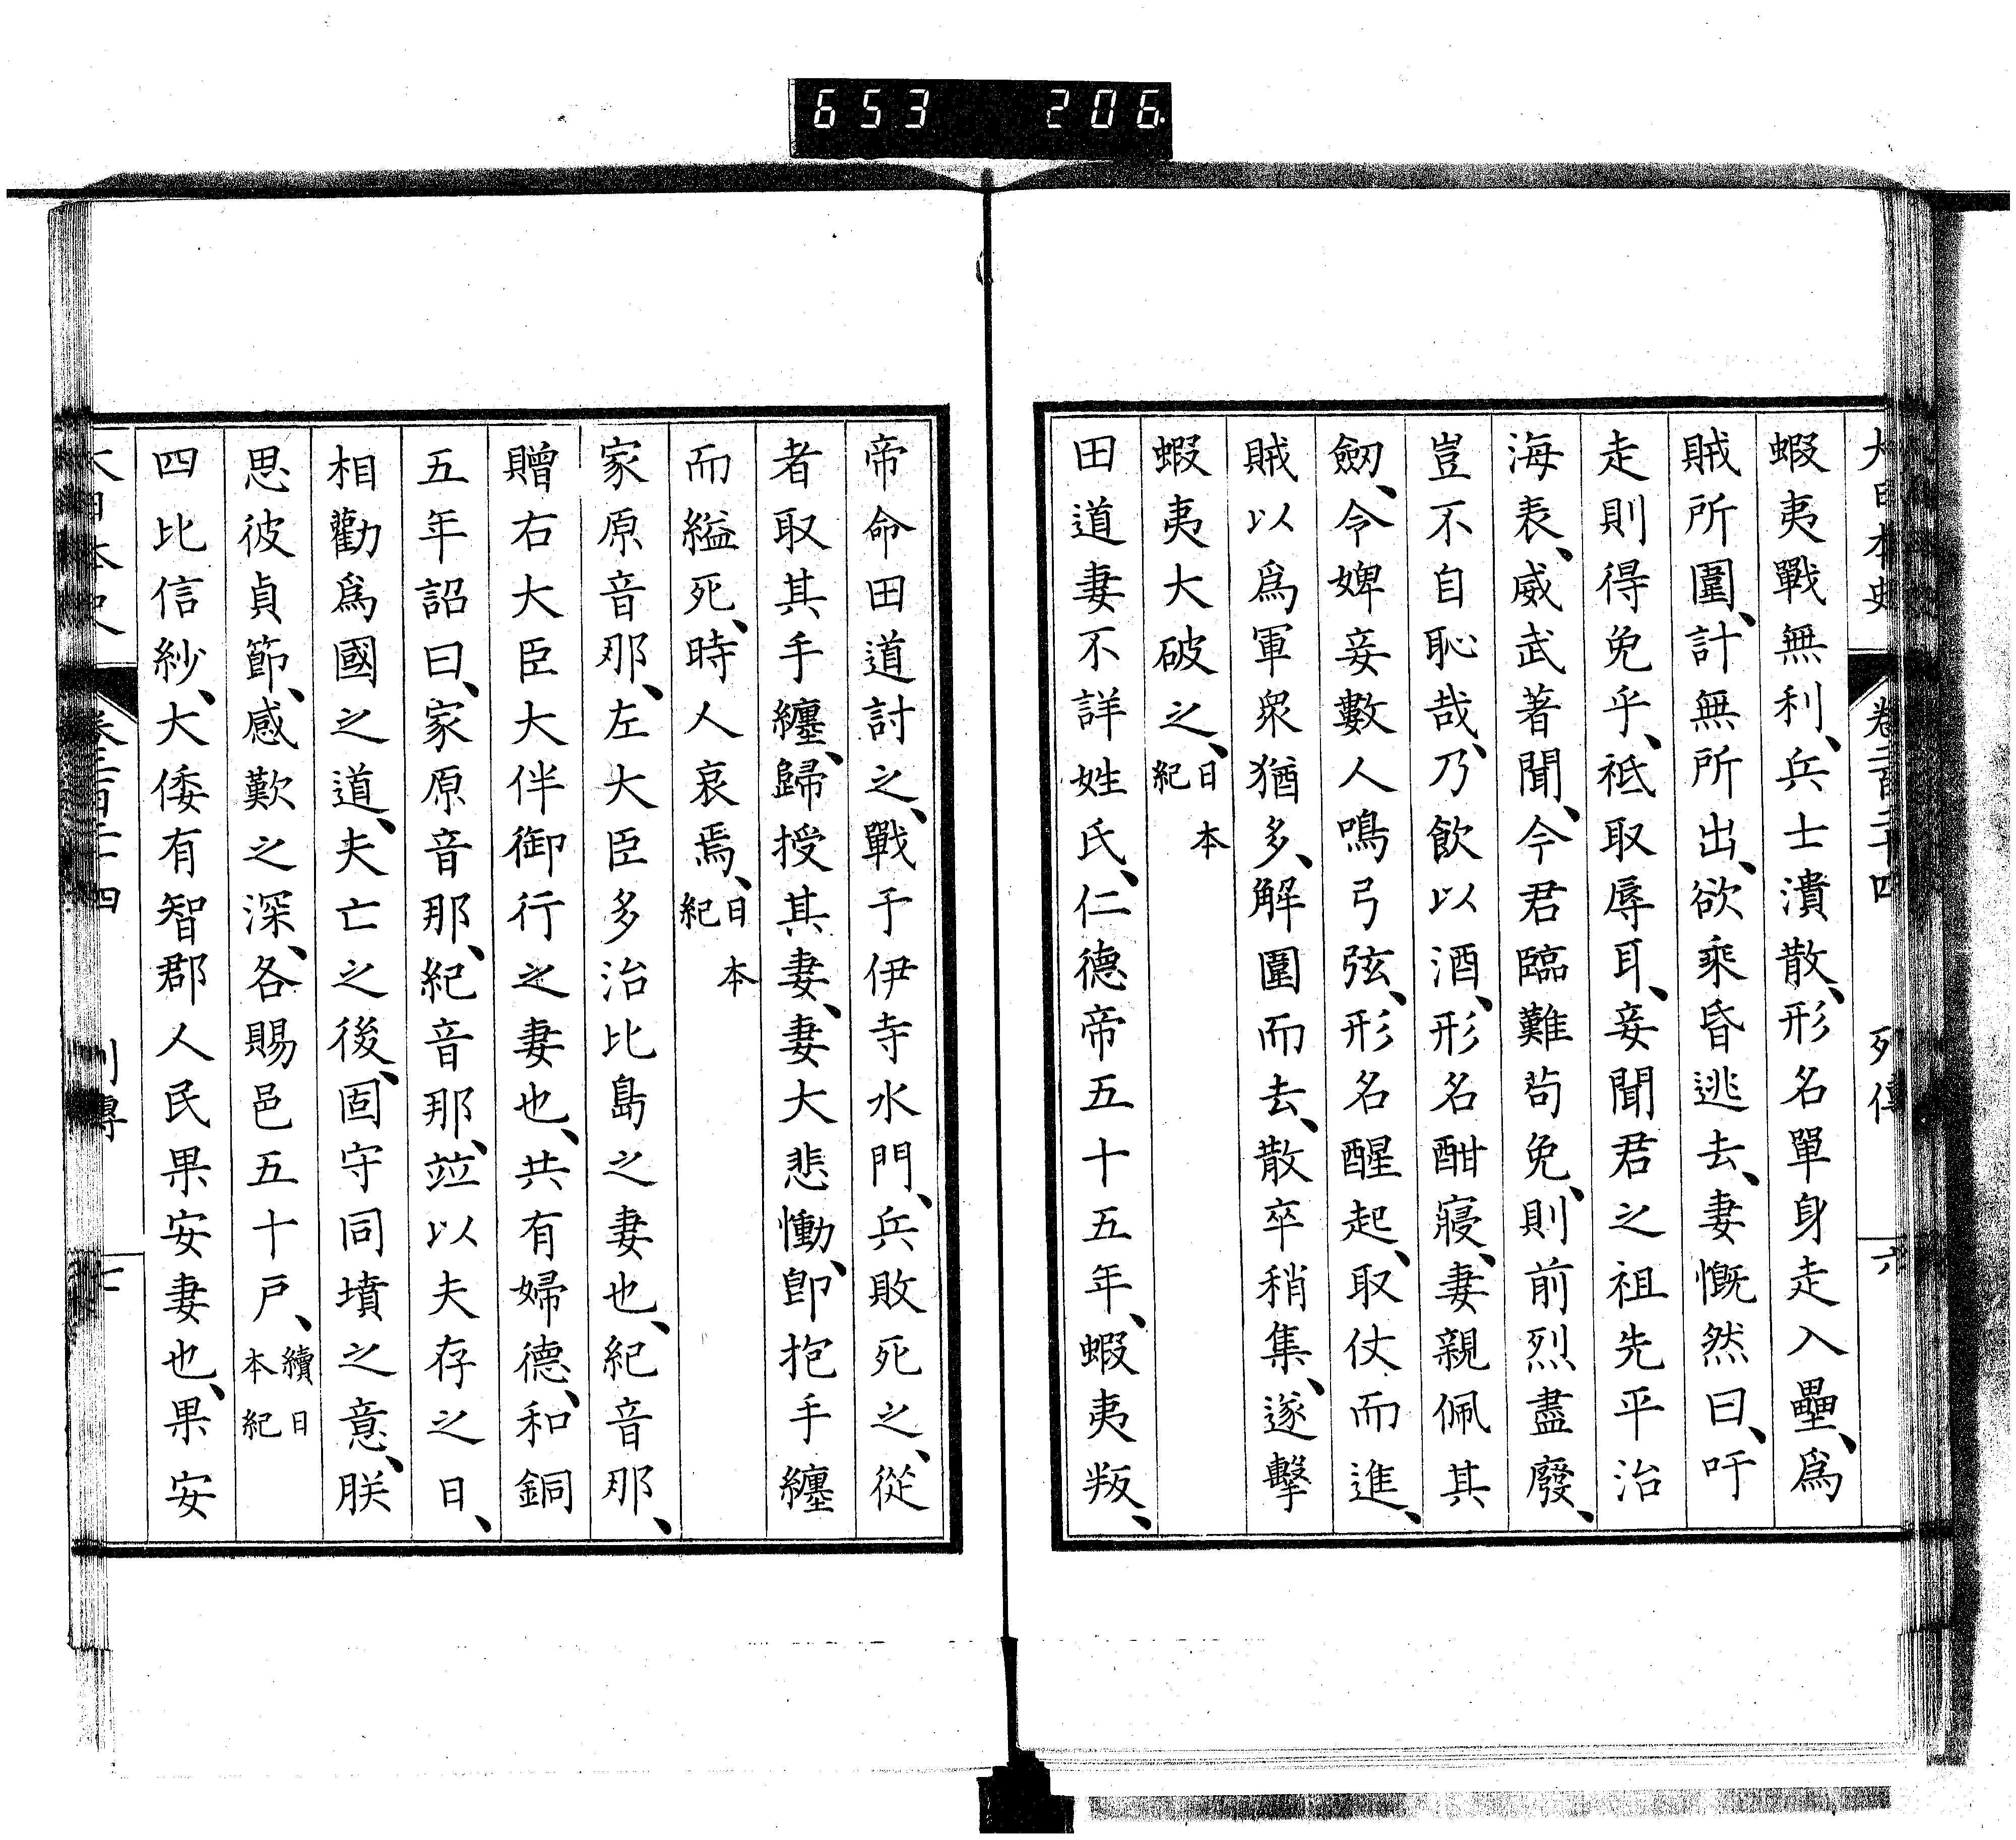 653 206
大日本史 卷二百二十四 列傳 六
蝦夷戰無利、兵士潰散、形名單身走入壘、爲
賊所圍、計無所出、欲乘昏逃去、妻慨然曰、吁
走則得免乎、祗取辱耳、妾聞君之祖先平治
海表、威武著聞、今君臨難茍免、則前烈盡廢、
豈不自恥哉、乃飮以酒、形名酣寢、妻親佩其
劒、令婢妾數人鳴弓弦、形名醒起、取仗而進、
賊以爲軍衆猶多、解圍而去、散卒稍集、遂擊
蝦夷大破之、日本紀
田道妻不詳姓氏、仁德帝五十五年、蝦夷叛、
帝命田道討之、戰于伊寺水門、兵敗死之、從
者取其手纏、歸授其妻、妻大悲慟、卽抱手纏
而縊死、時人哀焉、日本紀
家原音那、左大臣多治比島之妻也、紀音那、
贈右大臣大伴御行之妻也、共有婦德、和銅
五年詔曰、家原音那、紀音那、竝以夫存之日、
相勸爲國之道、夫亡之後、固守同墳之意、朕
思彼貞節、感歎之深、各賜邑五十戶、續日本紀
四比信紗、大倭有智郡人民果安妻也、果安
大日本史 卷二百二十四 列傳 七